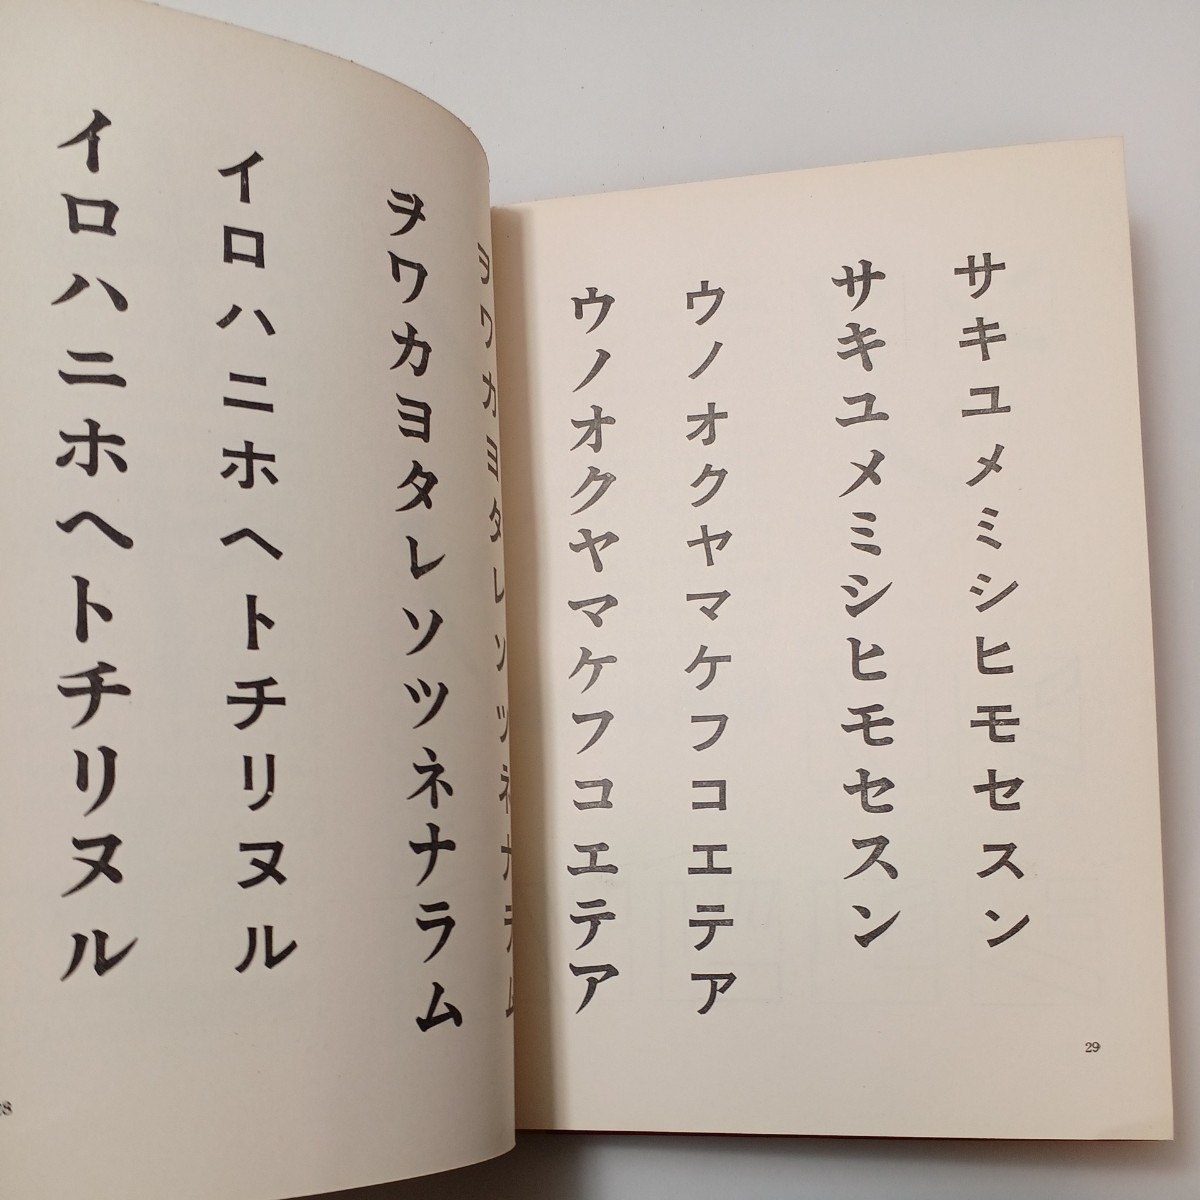 イロハニホヘトチリヌル
イロハニホヘトチリヌル
ヲワカヨタレソツネナラム
ヲワカヨタレソツネナラム
28
ウノオクヤマケフコエテア
ウノオクヤマケフコエテア
サキユメミシヒモセスン
サキユメミシヒモセスン
29